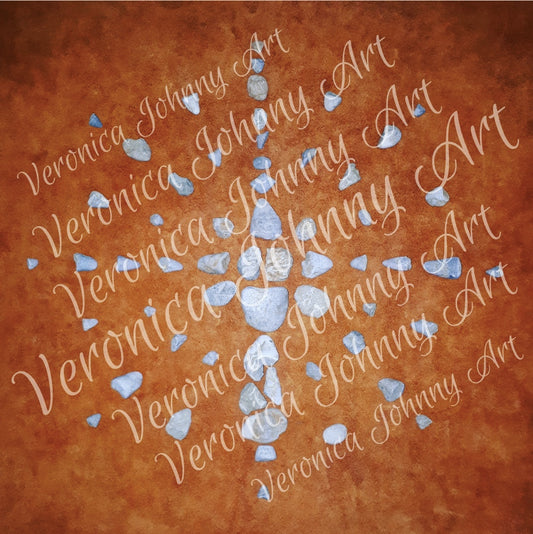 Veronica Johnny Art
Veronica Johnny Art
Veronica Johnny Art
Veronica Johnny Art
Veronica Johnny Art
Veronica Johnny Art
Veronica Johnny Art